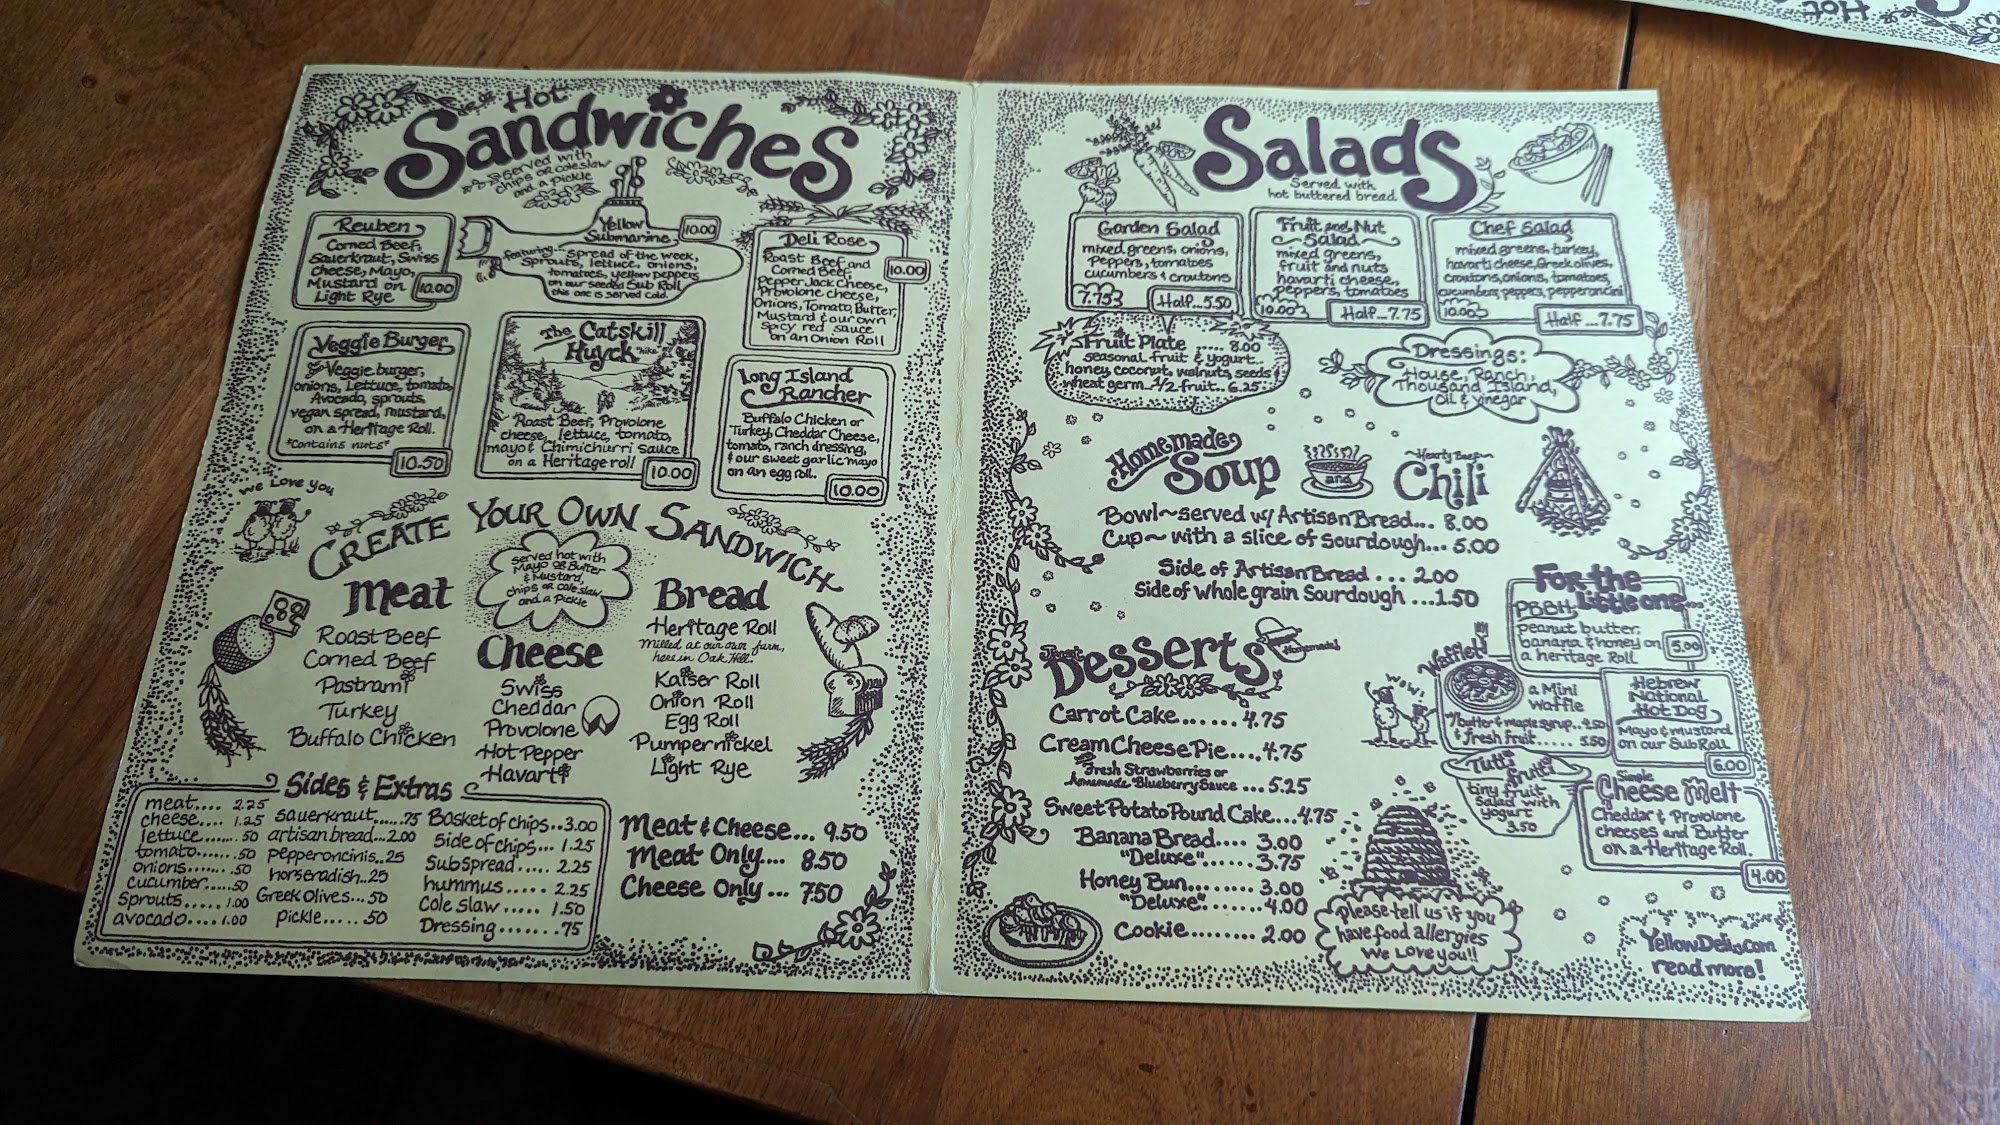 Hot
Sandwiches
Served with
chips or coleslaw
and a pickle
Reuben
Corned Beef,
Sauerkraut, Swiss
Cheese, Mayo,
Mustard on
Light Rye
10.00
Yellow
Submarine
10.00
featuring... spread of the week,
sprouts, lettuce, onions,
tomatoes, yellow peppers
on our seeded Sub Roll
this one is served cold.
Deli Rose
Roast Beef and
Corned Beef,
Pepper Jack Cheese,
Provolone cheese,
Onions, Tomato, Butter,
Mustard & our own
spicy red sauce
on an Onion Roll
10.00
Veggie Burger
Veggie burger,
onions, Lettuce, tomato,
Avocado, sprouts,
vegan spread, mustard,
on a Heritage Roll.
"Contains nuts"
10.50
The Catskill
Huyck "hike"
Roast Beef, Provolone
cheese, lettuce, tomato,
mayo & Chimichurri sauce
on a Heritage roll
10.00
Long Island
Rancher
Buffalo Chicken or
Turkey, Cheddar Cheese,
tomato, ranch dressing,
& our sweet garlic mayo
on an egg roll.
10.00
We Love you
CREATE YOUR OWN SANDWICH
served hot with
Mayo or Butter
& Mustard,
chips or coleslaw
and a pickle
Meat
Roast Beef
Corned Beef
Pastrami
Turkey
Buffalo Chicken
Cheese
Swiss
Cheddar
Provolone
Hot Pepper
Havarti
Bread
Heritage Roll
Milled at our own farm,
here in Oak Hill.
Kaiser Roll
Onion Roll
Egg Roll
Pumpernickel
Light Rye
Sides & Extras
meat.... 2.25
cheese.... 1.25
lettuce....... .50
tomato....... .50
onions....... .50
cucumber..... .50
sprouts..... 1.00
avocado.... 1.00
sauerkraut...... .75
artisan bread...2.00
pepperoncinis...25
horseradish...25
Greek Olives....50
pickle..... .50
Basket of chips..3.00
Side of chips... 1.25
Sub spread..... 2.25
hummus..... 2.25
Cole slaw..... 1.50
Dressing....... .75
Meat & Cheese... 9.50
Meat Only.... 8.50
Cheese Only... 7.50
Salads
Served with
hot buttered bread
Garden Salad
mixed greens, onions,
peppers, tomatoes
cucumbers & croutons
7.75
Half...5.50
Fruit and Nut
Salad
mixed greens,
fruit and nuts
havarti cheese,
peppers, tomatoes
10.00
Half...7.75
Chef Salad
mixed greens, turkey,
havarti cheese, Greek olives,
croutons, onions, tomatoes,
cucumbers, peppers, pepperoncini
10.00
Half...7.75
Fruit Plate ..... 8.00
seasonal fruit & yogurt..
honey, coconut, walnuts, seeds &
wheat germ..1/2 fruit..6.25
Dressings:
House, Ranch,
Thousand Island,
Oil & vinegar
Homemade
Soup
and
~Hearty Beef~
Chili
Bowl~served w/ Artisan Bread... 8.00
Cup~ with a slice of sourdough... 5.00
Side of Artisan Bread ... 2.00
Side of whole grain Sourdough ...1.50
Desserts
Homemade!
Carrot Cake...... 4.75
Cream Cheese Pie....4.75
Fresh Strawberries or
homemade Blueberry Sauce ...5.25
Sweet Potato Pound Cake....4.75
Banana Bread.... 3.00
"Deluxe"...... 3.75
Honey Bun.... 3.00
"Deluxe".......4.00
Cookie........ 2.00
For the
little one...
PBBH
peanut butter,
banana & honey on
a heritage Roll
5.00
WOW!
Waffles!
a Mini
waffle
w/butter & maple syrup..4.50
& fresh fruit..... 5.50
Hebrew
National
Hot Dog
Mayo & mustard
on our Sub Roll
6.00
Tutti
frutti
tiny fruit
salad with
yogurt
3.50
Simple
Cheese Melt
Cheddar & Provolone
cheeses and Butter
on a Heritage Roll.
4.00
Please tell us if you
have food allergies
We Love you!!
YellowDeli.com
read more!
Hot